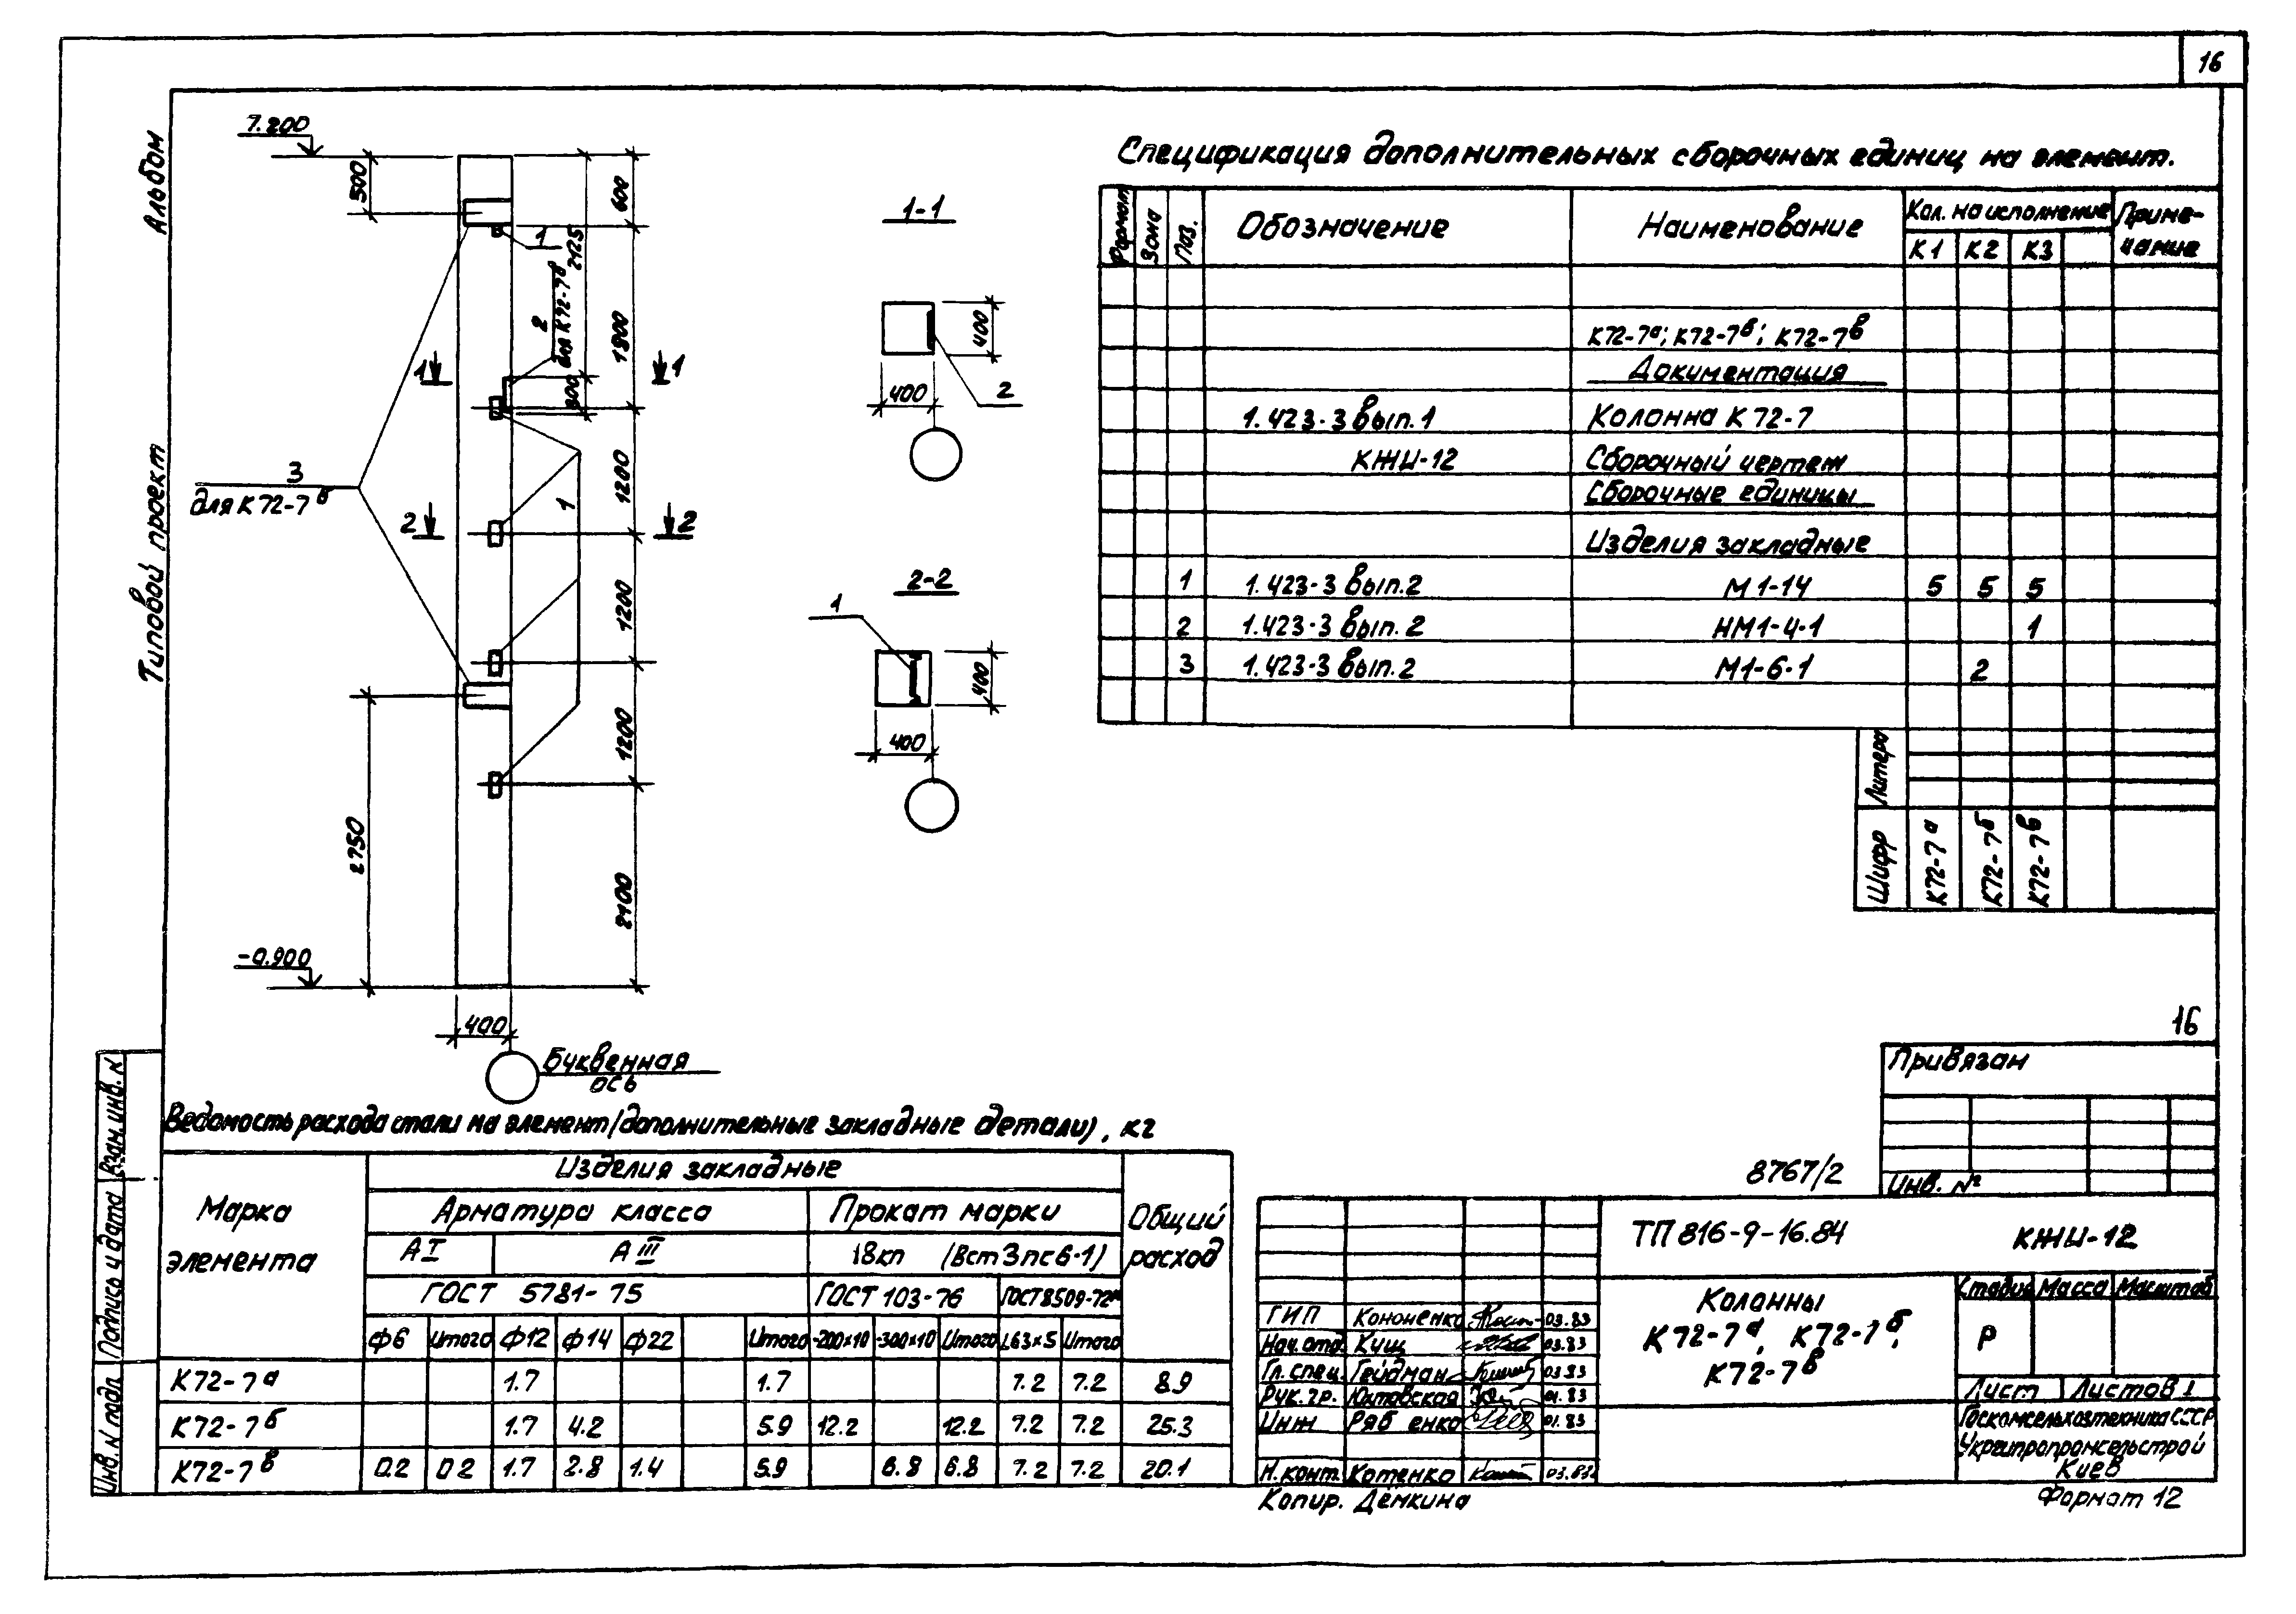 16
Альбом
Типовой проект
7.200
500
600
1
2125
2
для К72-7в
1800
1
1
300
3
для К72-7б
1200
1
2
2
1200
1200
2750
2100
-0.900
400
Буквенная
ось
1-1
400
400
2
2-2
1
400
400
Спецификация дополнительных сборочных единиц на элемент.
Формат Зона Поз. Обозначение Наименование Кол. на исполнение Приме-
К1 К2 К3 чание
К72-7а; К72-7б; К72-7в
Документация
1.423-3 вып.1 Колонна К72-7
КЖИ-12 Сборочный чертеж
Сборочные единицы
Изделия закладные
1 1.423-3 вып.2 М1-14 5 5 5
2 1.423-3 вып.2 НМ1-4-1 1
3 1.423-3 вып.2 М1-6-1 2
Литера
Шифр К72-7а К72-7б К72-7в
16
Привязан
Инв. №
8767/2
Ведомость расхода стали на элемент (дополнительные закладные детали), кг
Марка элемента Изделия закладные Общий расход
Арматура класса Прокат марки
А I А III 18кп (Вст3пс6-1)
ГОСТ 5781-75 ГОСТ 103-76 ГОСТ 8509-72*
Ф6 Итого Ф12 Ф14 Ф22 Итого -200х10 -300х10 Итого L63х5 Итого
К72-7а 1.7 1.7 7.2 7.2 8.9
К72-7б 1.7 4.2 5.9 12.2 12.2 7.2 7.2 25.3
К72-7в 0.2 0.2 1.7 2.8 1.4 5.9 6.8 6.8 7.2 7.2 20.1
Взам. инв. N
Подпись и дата
Инв. N подл
ТП 816-9-16.84 КЖИ-12
Колонны
К72-7а, К72-7б,
К72-7в
Стадия Масса Масштаб
Р
Лист Листов 1
Госкомсельхозтехника СССР
Укргипропромсельстрой
Киев
ГИП Кононенко 03.83
Нач. отд. Кущ 03.83
Гл. спец. Гейдман 03.83
Рук. гр. Юхтовская 01.83
Инж Ряб енко 01.83
Н. конт. Котенко 03.83
Копир. Дёмкина
Формат 12